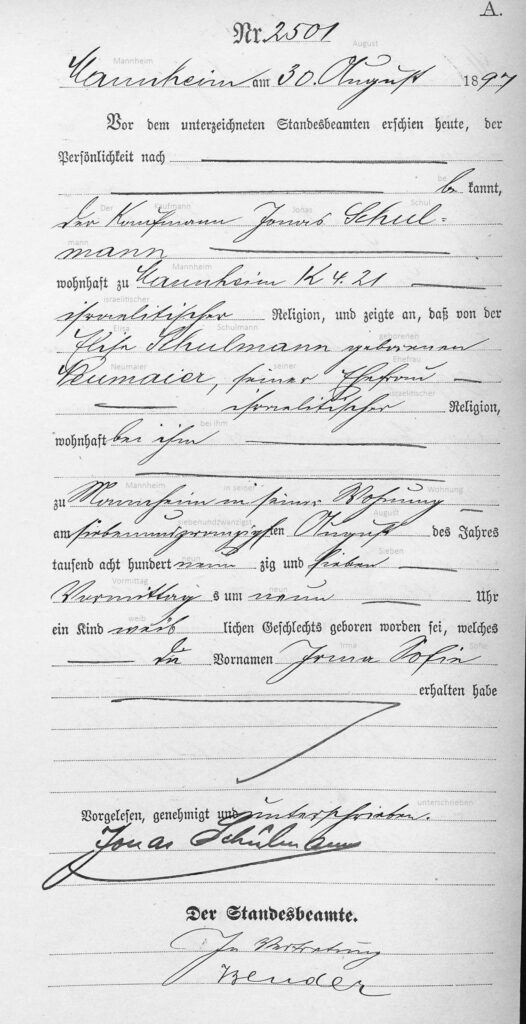 A.
Nr. 2501
Mannheim August
Mannheim am 30. August 1897
Vor dem unterzeichneten Standesbeamten erschien heute, der
Persönlichkeit nach
be
be kannt,
Der Kaufmann Jonas Schul
der Kaufmann Jonas Schul-
mann
mann
Mannheim
wohnhaft zu Mannheim K 4. 21
israelitischer
israelitischer Religion, und zeigte an, daß von der
Elisa Schulmann geborenen
Elise Schulmann geborenen
Neumaier seiner Ehefrau
Neumaier, seiner Ehefrau
israelitischer
israelitischer Religion,
bei ihm
wohnhaft bei ihm
Mannheim in seiner Wohnung
zu Mannheim in seiner Wohnung
siebenundzwanzigst August
am siebenundzwanzigsten August des Jahres
neun Sieben
tausend acht hundert neun zig und sieben
Vormittag neun
Vormittag s um neun Uhr
weib
ein Kind weib lichen Geschlechts geboren worden sei, welches
Irma Sofie
die Vornamen Irma Sofie
erhalten habe
unterschrieben
Vorgelesen, genehmigt und unterschrieben.
Jonas Schulmann
Der Standesbeamte.
In Vertretung
Bender